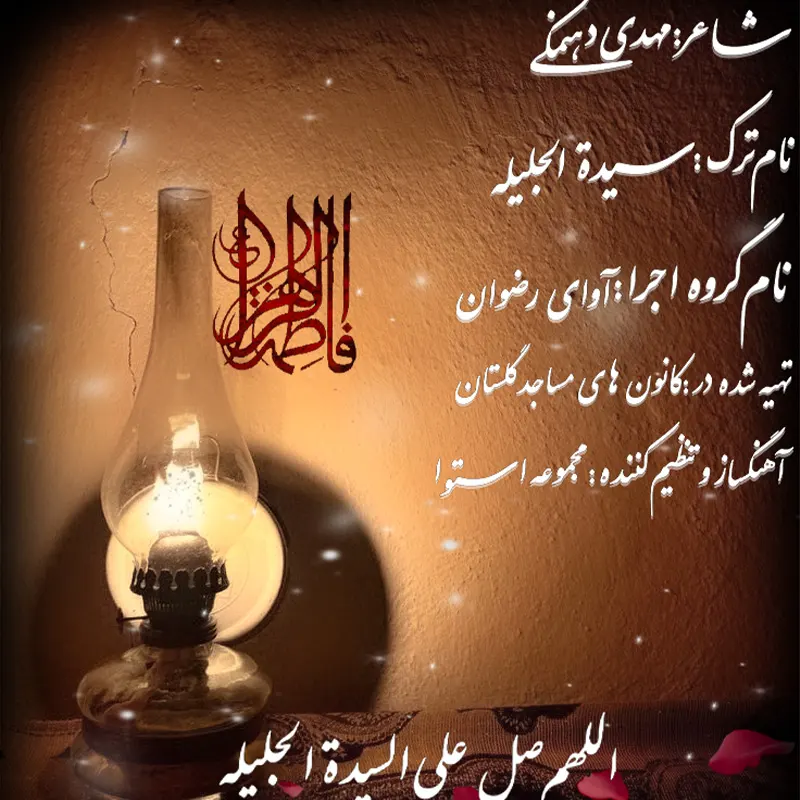 شاعر: مهدی دهمکی
نام ترک: سیدة الجلیله
نام گروه اجرا: آوای رضوان
تهیه شده در: کانون های مساجد گلستان
آهنگساز و تنظیم کننده: مجموعه استوا
فاطمة الزهرا
اللهم صل علی السیدة الجلیله